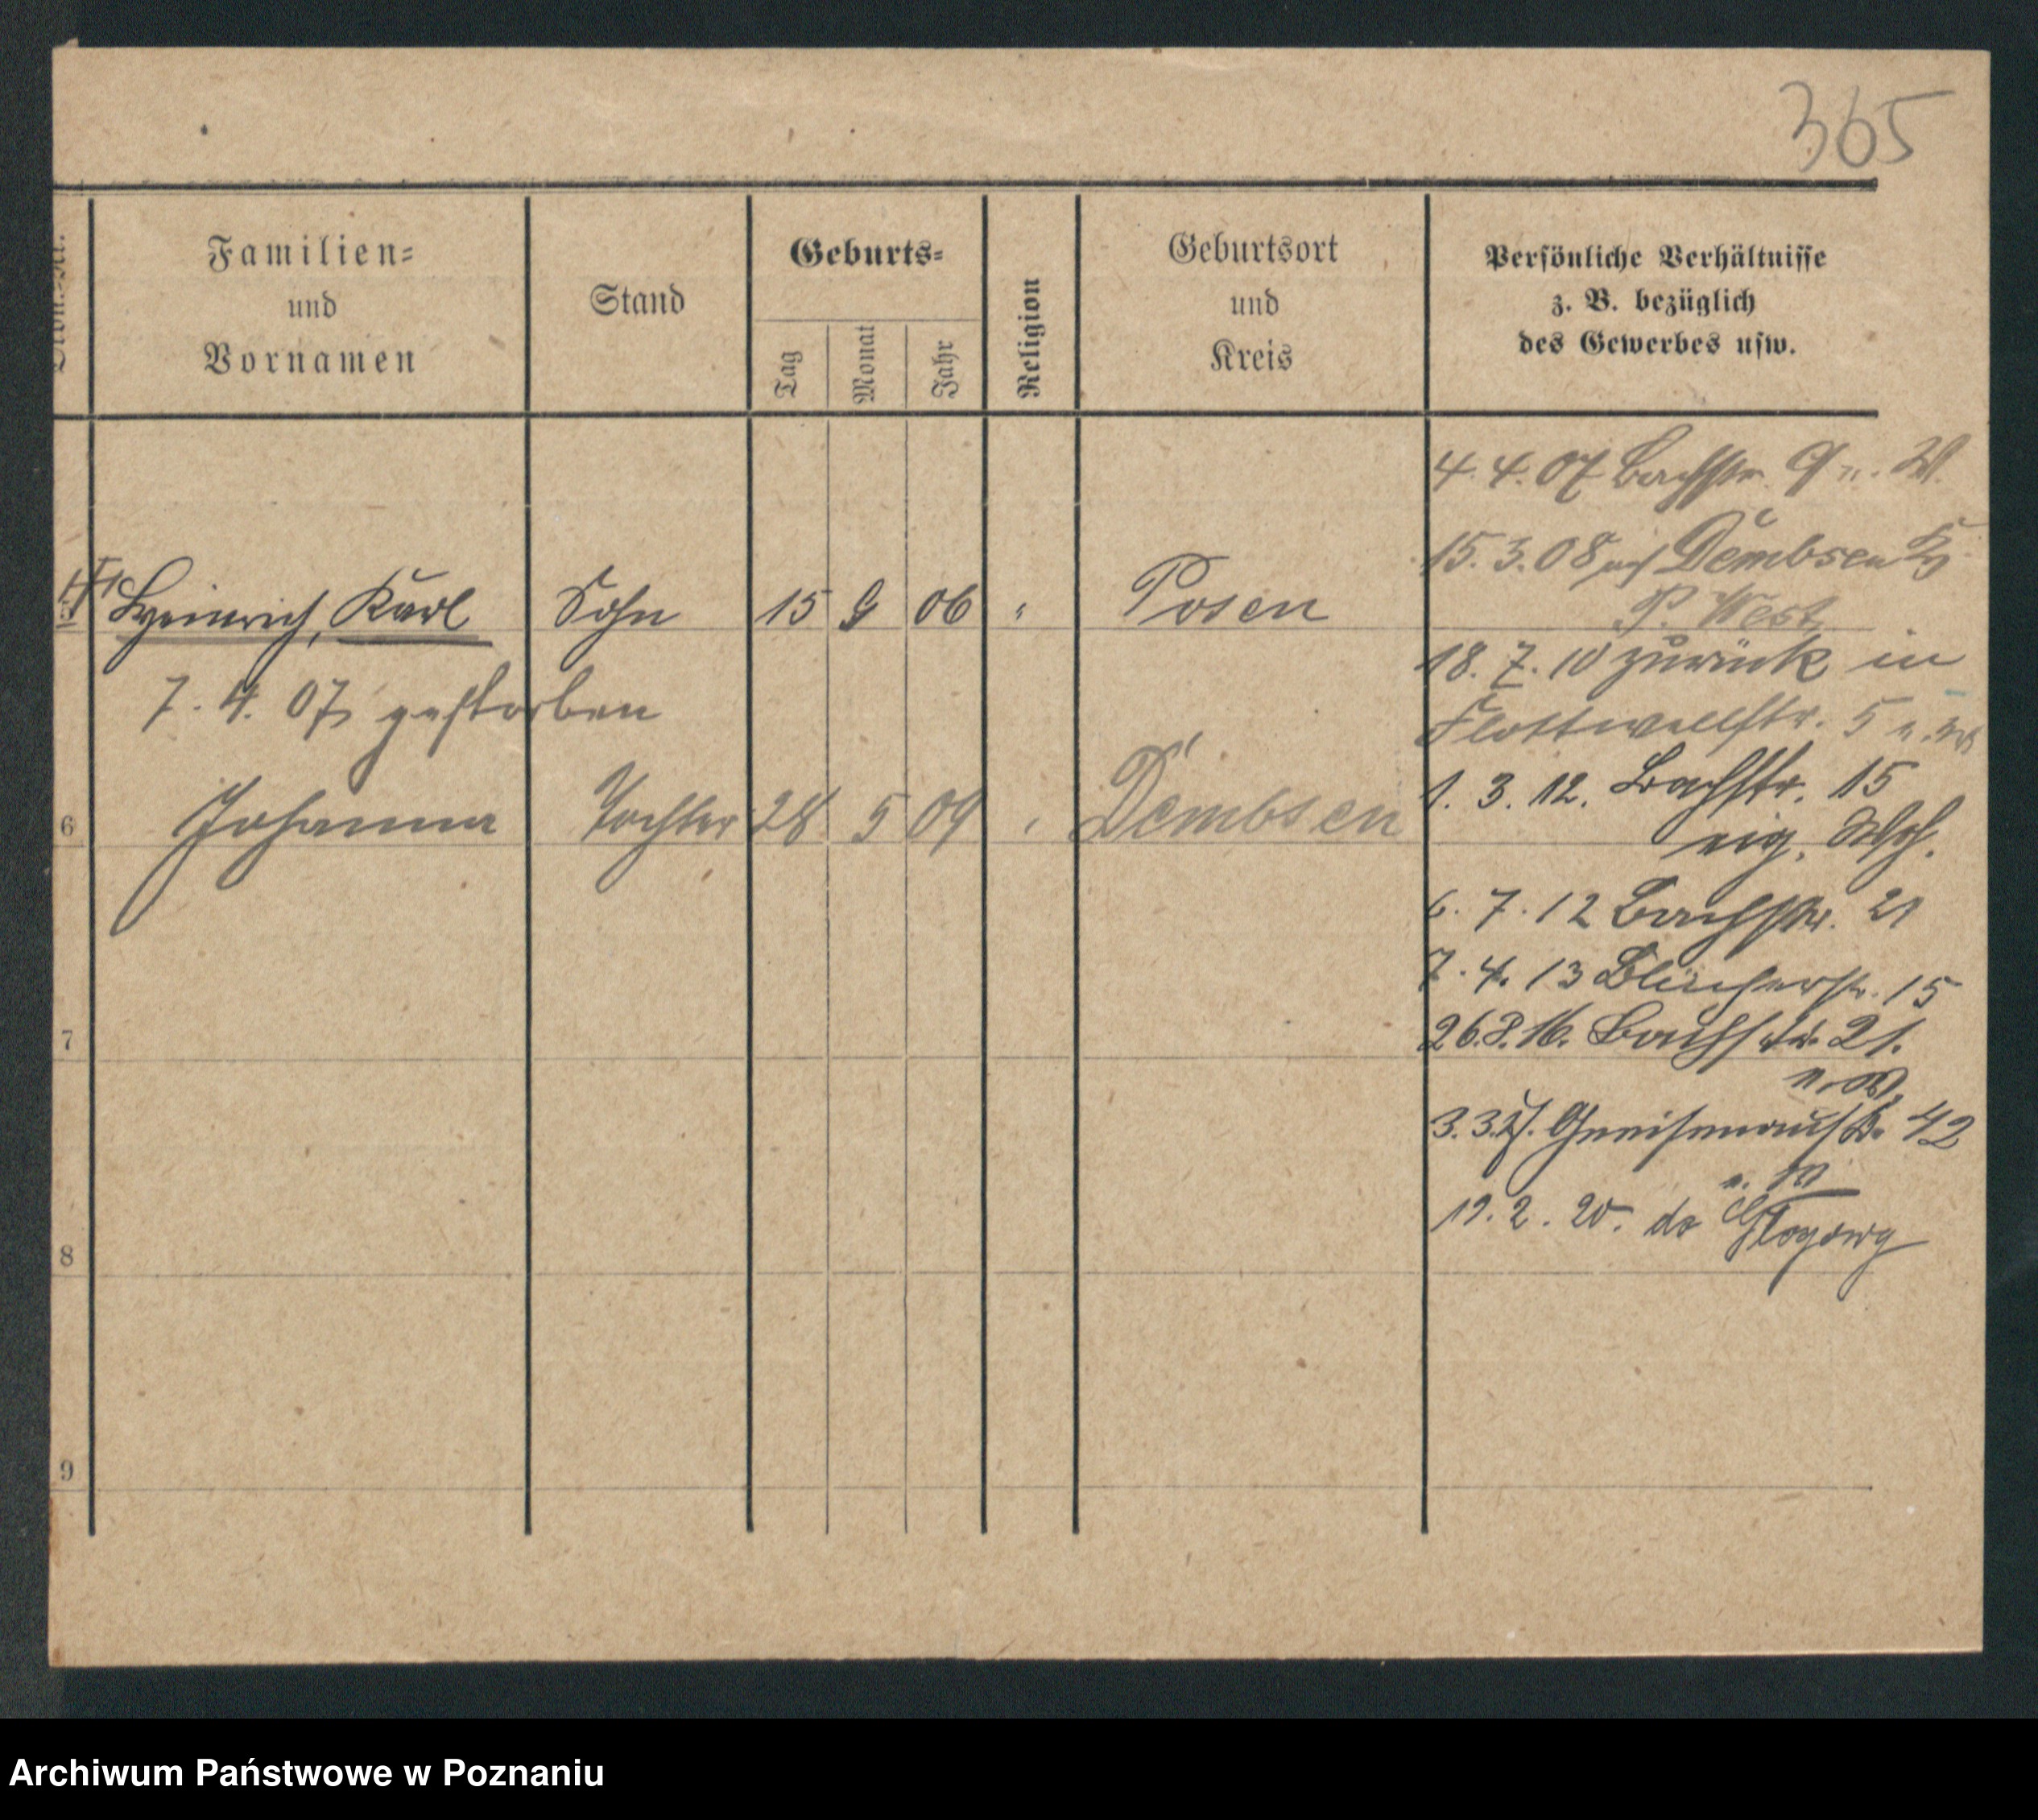 365
Familien=
und
Vornamen
Stand
Geburts=
Tag
Monat
Jahr
Religion
Geburtsort
und
Kreis
Persönliche Verhältnisse
z. B. bezüglich
des Gewerbes usw.
4. 4. 07 Bachstr. 9 u. W.
15. 3. 08 nach Dembsen
P. West
5 Heinrich, Karl Sohn 15 9 06 " Posen
18. 7. 10 zurück in
7. 4. 07 gestorben
Flottwellstr. 5
1. 3. 12. Bachstr. 15
6 Johanna Tochter 28 5 09 " Dembsen
eig. Whg.
6. 7. 12 Bachstr. 21
7. 4. 13 Blücherstr. 15
7
26. 8. 16. Bachstr. 21.
u. W.
3. 3. Gneisenaustr. 42
u. W
19. 2. 20. do
8
9
Archiwum Państwowe w Poznaniu